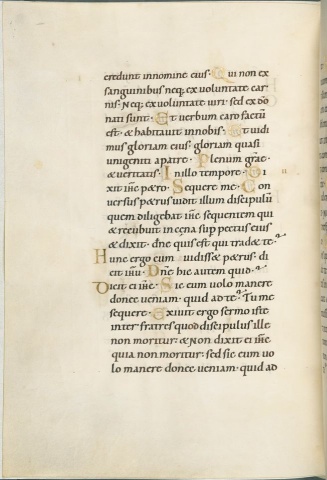 credunt innomine eius· Qui non ex
sanguinibus neq; ex voluntate car
nis· Neq; ex voluntate uiri· sed ex dō
nati sunt· Et verbum caro factū
est· & habitauit innobis· Et uidi
mus gloriam eius· gloriam quasi
unigeniti a patre· Plenum grāe·
& ueritatis· In illo tempore· Di
xit ihē petro· Sequere me· Con
versus petrus uidit illum discipulū
quem diligebat ihē sequentem qui
& recubuit in cena sup pectus eius
& dixit· dnē quis est qui tradet te·
Hunc ergo cum uidisset petrus· di
cit ihū· Dnē hic autem quid·
Dicit ei ihē· Sic eum uolo manere
donec veniam· quid ad te· Tu me
sequere· Exiuit ergo sermo iste
inter fratres quod discipulus ille
non moritur· & Non dixit ei ihē
quia non moritur· sed sic eum uo
lo manere donec ueniam· quid ad